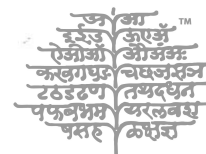 अ आ ™
इ ई उ ऊ ए ऍ
ऐ ओ औ ऑ अं अः
क ख ग घ ङ च छ ज झ ञ
ट ठ ड ढ ण त थ द ध न
प फ ब भ म य र ल व श
ष स ह ळ क्ष ज्ञ